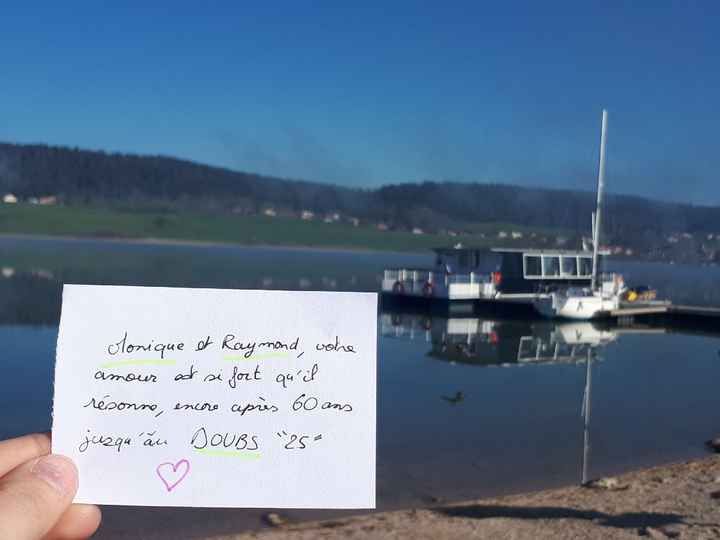 Monique et Raymond, votre
amour est si fort qu'il
résonne, encore après 60 ans
jusqu'au DOUBS "25"